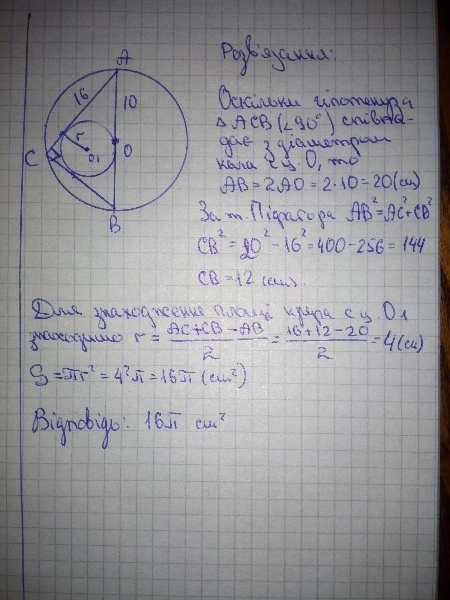 Розв'язання:
A
16
10
r
C
O₁
O
B
Оскільки гіпотенуза
△ ACB (∠90°) співпа-
дає з діаметром
кола с ц. O, то
AB = 2AO = 2·10 = 20 (см)
За т. Піфагора AB² = AC² + CB²
CB² = 20² - 16² = 400 - 256 = 144
CB = 12 (см).
Для знаходження площі круга с ц. O₁
знаходимо r = (AC + CB - AB)/2 = (16 + 12 - 20)/2 = 4 (см)
S = πr² = 4²π = 16π (см²)
Відповідь: 16π см²